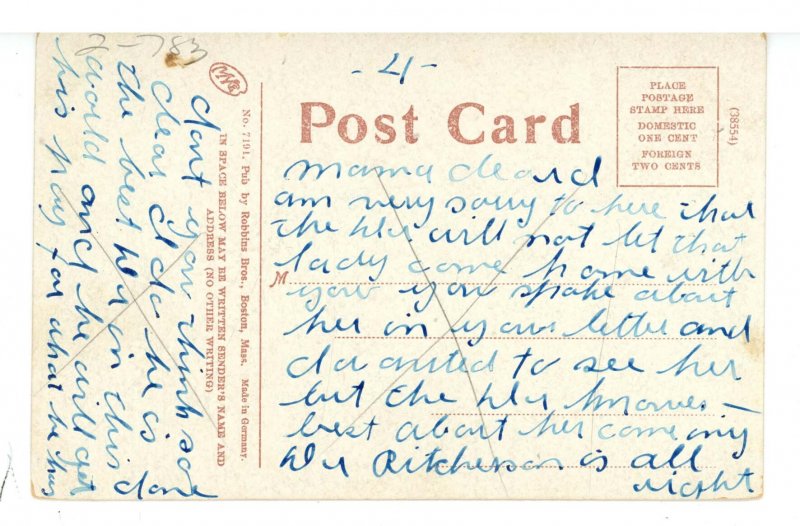 -4-
Post Card
PLACE
POSTAGE
STAMP HERE
DOMESTIC
ONE CENT
FOREIGN
TWO CENTS
(38554)
mama dear I
am very sorry to here that
the Dr will not let that
lady come home with
M
you you spoke about
her in your letter and
I wanted to see her
but the Dr knows
best about her coming
Dr Ritcherson is all
right
No. 7191. Pub by Robbins Bros., Boston, Mass. Made in Germany.
IN SPACE BELOW MAY BE WRITTEN SENDER'S NAME AND
ADDRESS (NO OTHER WRITING)
dont you think so
dear I do he is
the best Dr in this
world and he will get
his pay for what he has
done
783